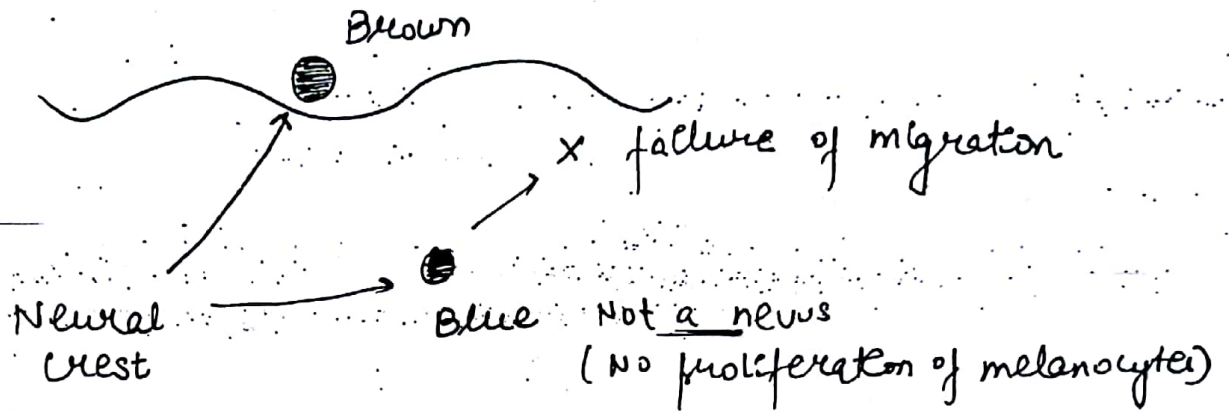 Brown
X. failure of migration
Neural
crest
Blue Not a nevus
(No proliferation of melanocytes)